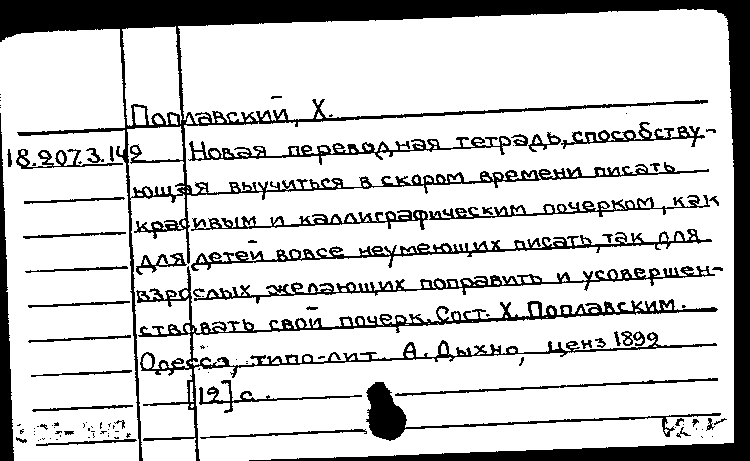 Поплавский, Х.
18.207.3.149 Новая переводная тетрадь, способству-
ющая выучиться в скором времени писать
красивым и каллиграфическим почерком, как
для детей вовсе неумеющих писать, так для
взрослых, желающих поправить и усовершен-
ствовать свой почерк. Сост. Х. Поплавским.
Одесса, типо-лит. А. Дыхно, ценз 1899
[12] с.